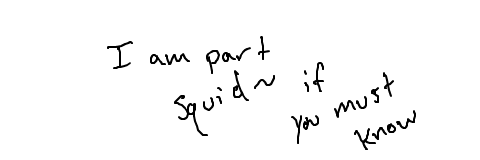 I am part
squid~ if
you must
know